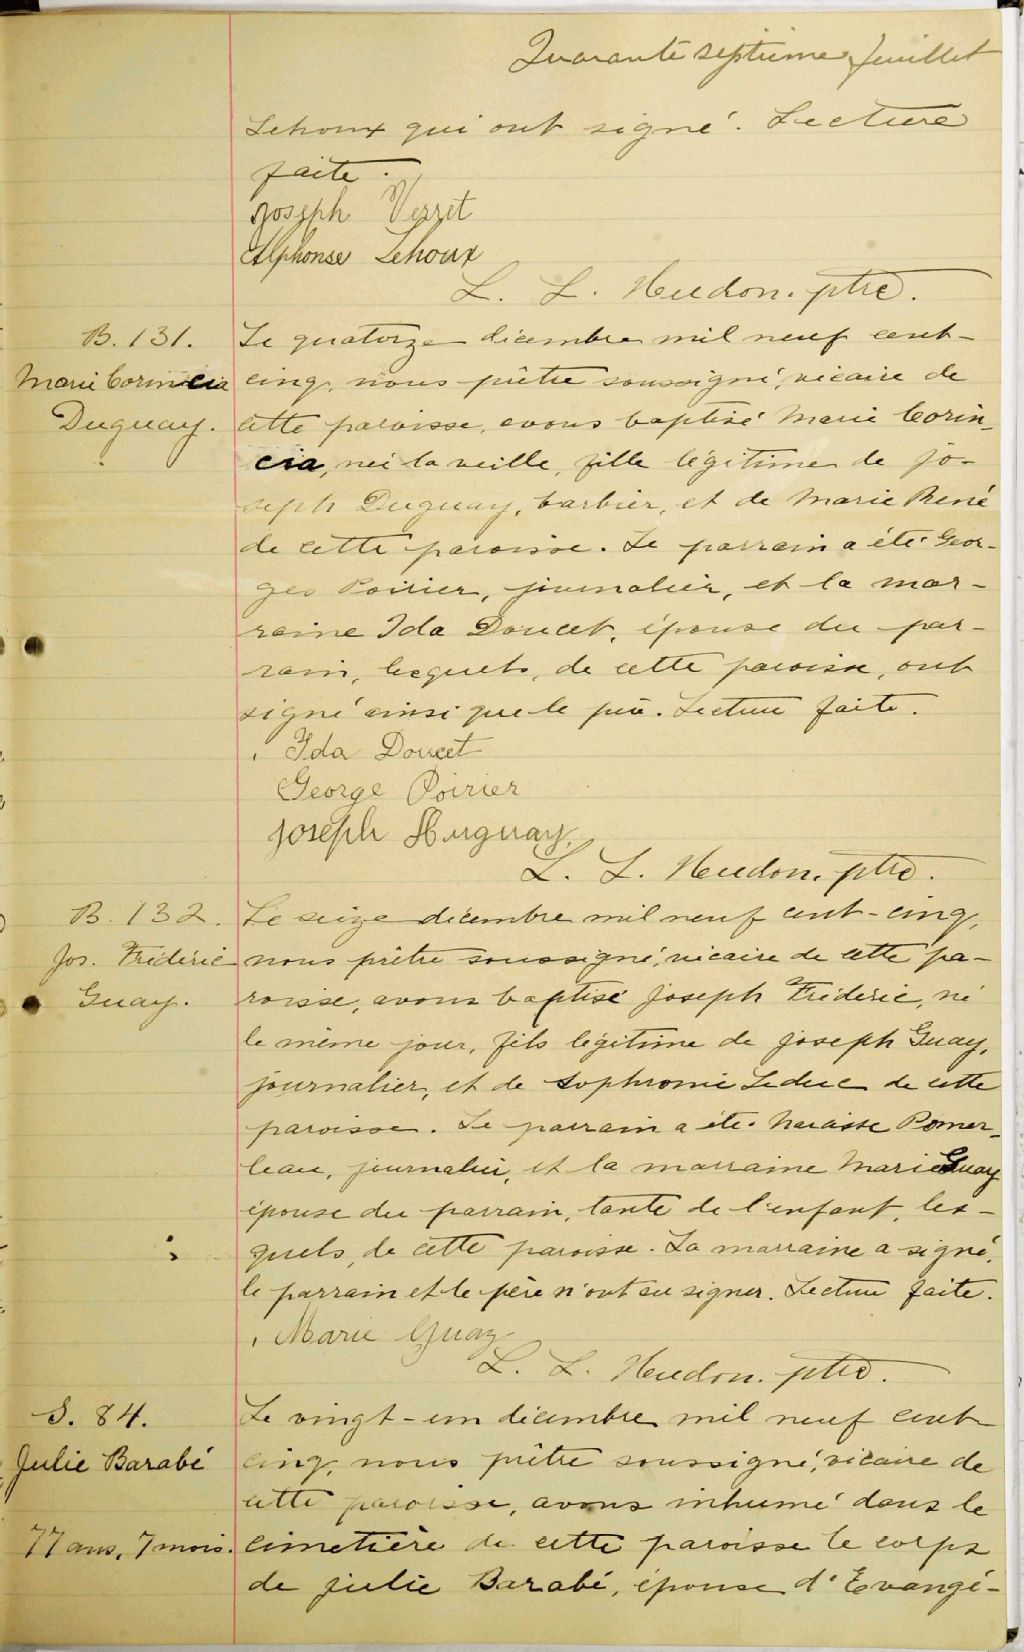 Quarante septième feuillet
Lehoux qui ont signé. Lecture
faite.
Joseph Verret
Alphonse Lehoux
L. L. Hudon. ptre.
B. 131.
Marie Corincia
Duguay.
Le quatorze décembre mil neuf cent-
cinq, nous prêtre soussigné, vicaire de
cette paroisse, avons baptisé Marie Corin-
cia, née la veille, fille légitime de Jo-
seph Duguay, barbier, et de Marie René
de cette paroisse. Le parrain a été Geor-
ges Poirier, journalier, et la mar-
raine Ida Doucet, épouse du par-
rain, lesquels, de cette paroisse, ont
signé ainsi que le père. Lecture faite.
Ida Doucet
George Poirier
Joseph Duguay
L. L. Hudon. ptre.
B. 132.
Jos. Fréderic
Guay.
Le seize décembre mil neuf cent-cinq,
nous prêtre soussigné, vicaire de cette pa-
roisse, avons baptisé Joseph Fréderic, né
le même jour, fils légitime de Joseph Guay,
journalier, et de Sophronie Leduc de cette
paroisse. Le parrain a été Narcisse Pomer-
leau, journalier, et la marraine Marie Guay
épouse du parrain, tante de l'enfant, les-
quels, de cette paroisse. La marraine a signé,
le parrain et le père n'ont su signer. Lecture faite.
Marie Guay
L. L. Hudon. ptre.
S. 84.
Julie Barabé
77 ans, 7 mois.
Le vingt-un décembre mil neuf cent
cinq, nous prêtre soussigné, vicaire de
cette paroisse, avons inhumé dans le
cimetière de cette paroisse le corps
de Julie Barabé, épouse d'Evangé-